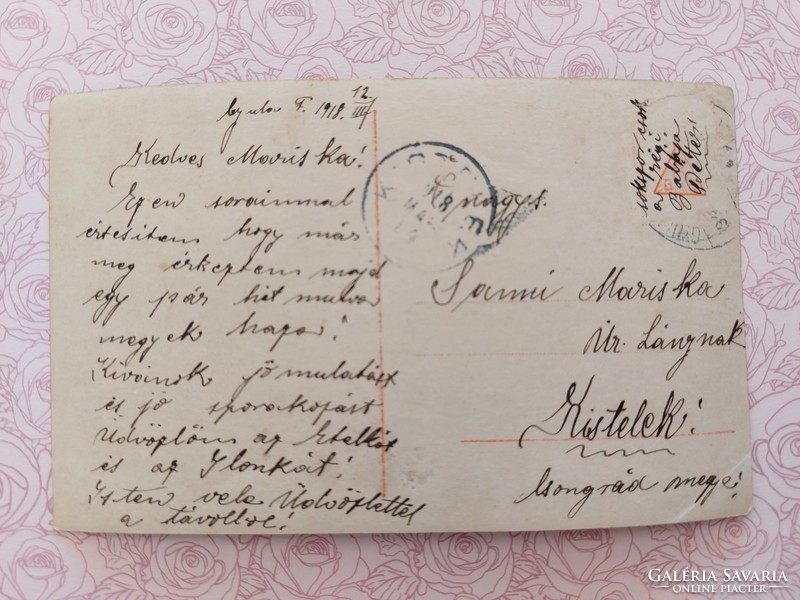 Gyula F. 1918. 12/III
Kedves Mariska!
Ezen soraimmal
értesitem hogy már
meg érkeztem majd
egy pár hét mulva
megyek haza!
Kivánok jó mulatást
és jó szorakozást
Üdvözlöm az Etelkát
és az Ilonkát!
Isten vele Üdvözlettel
a távolból!
Nagys.
Sanni Mariska
Úr. Lánynak
Kistelek!
Csongrád megye!
sokszor csok
a régi
GALÉRIA SAVARIA
ONLINE PIACTÉR